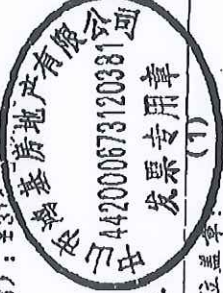 中山市瀚基房地产有限公司
442000673120381
发票专用章
(1)
位盖章: